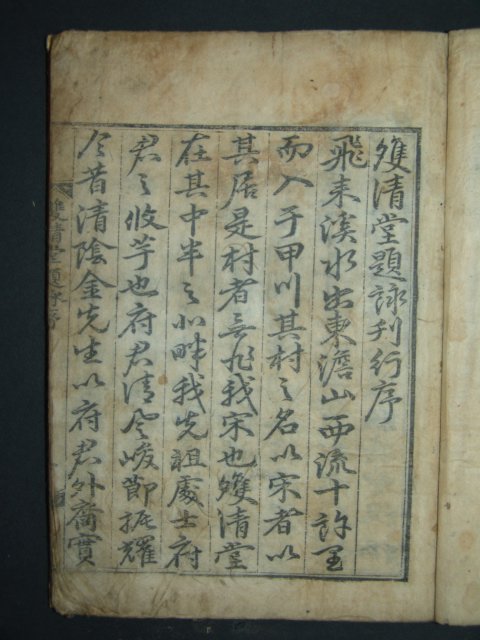 雙清堂題詠刊行序
飛来溪水出東澹山西流十許里
而入于甲川其村之名以宋者以
其居是村者無非我宋也雙清堂
在其中半之北畔我先祖處士府
君之攸芋也府君清風峻節振耀
今昔清陰金先生以府君外裔實
雙清堂題詠序